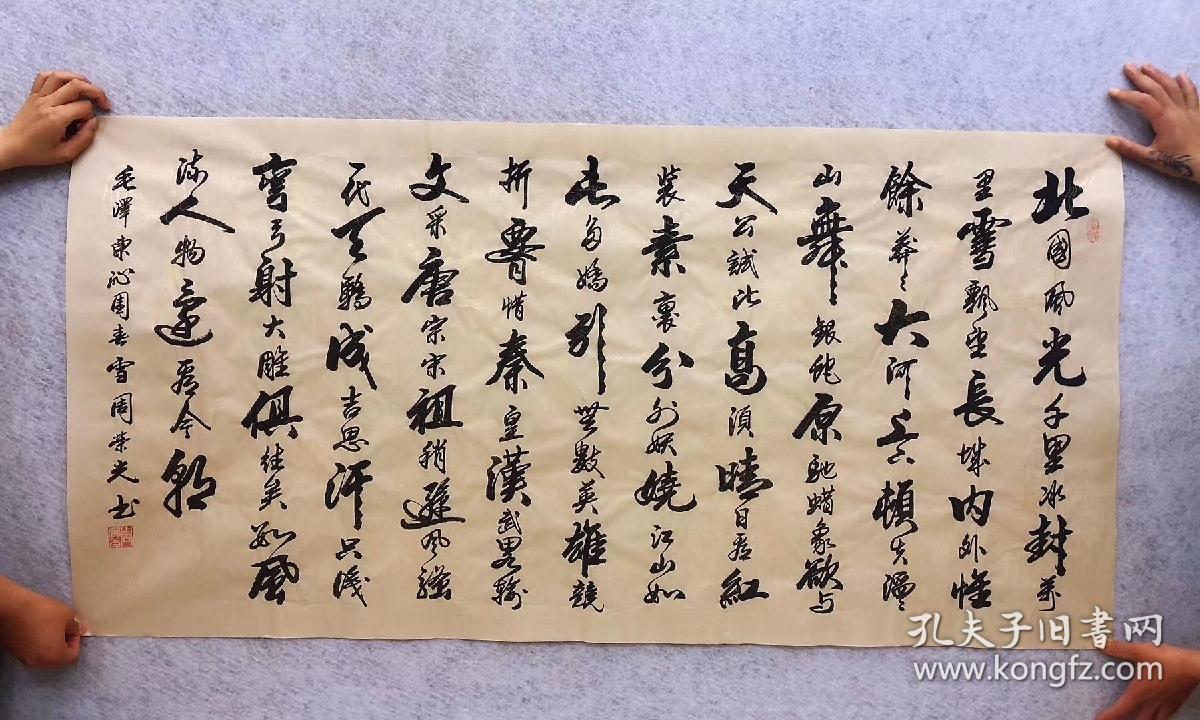 北國風光千里冰封萬
里雪飄望長城内外惟
餘莽莽大河上下頓失滔滔
山舞銀蛇原馳蠟象欲与
天公試比高須晴日看紅
裝素裹分外妖嬈江山如
此多嬌引無數英雄競
折腰惜秦皇漢武略輸
文采唐宗宋祖稍遜風騷
一代天驕成吉思汗只識
彎弓射大雕俱往矣數風
流人物還看今朝
毛澤東沁園春雪周榮光书
孔夫子旧書网
www.kongfz.com